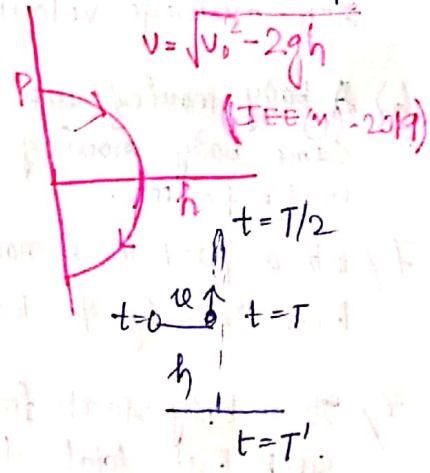 V = √(V₀² - 2gh)
P
(JEE M - 2019)
h
t = T/2
u
t=0 t = T
h
t = T'.